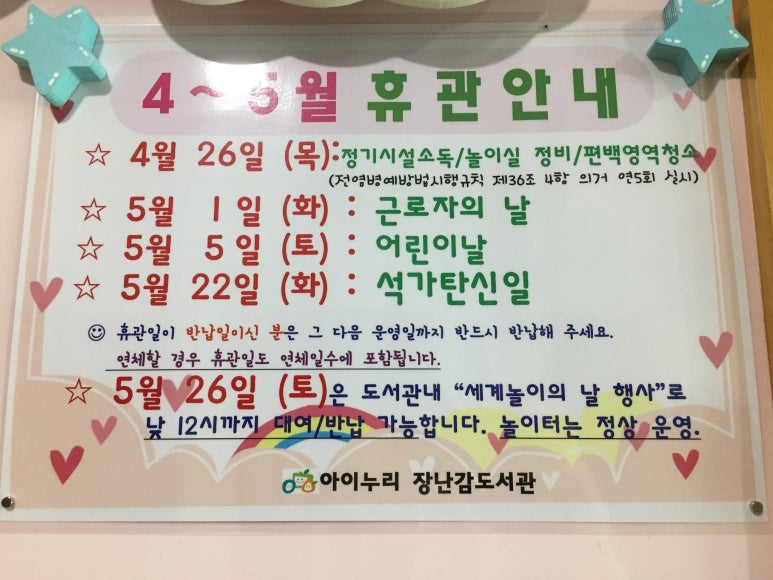 4~5월 휴관안내
☆ 4월 26일 (목):정기시설소독/놀이실 정비/편백영역청소
(전염병예방법시행규칙 제36조 4항 의거 연5회 실시)
☆ 5월 1일 (화) : 근로자의 날
☆ 5월 5일 (토) : 어린이날
☆ 5월 22일 (화) : 석가탄신일
☺ 휴관일이 반납일이신 분은 그 다음 운영일까지 반드시 반납해 주세요.
연체할 경우 휴관일도 연체일수에 포함됩니다.
☆ 5월 26일 (토)은 도서관내 “세계놀이의 날 행사”로
낮 12시까지 대여/반납 가능합니다. 놀이터는 정상 운영.
아이누리 장난감도서관